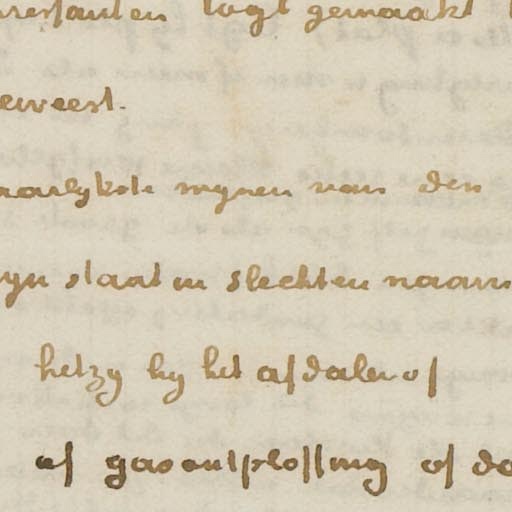 ressanten togt gemaakt
eweest.
aarlykste mynen van den
yn staat en slechten naam
hetzy by het afdalen of
of gasontploffing of do